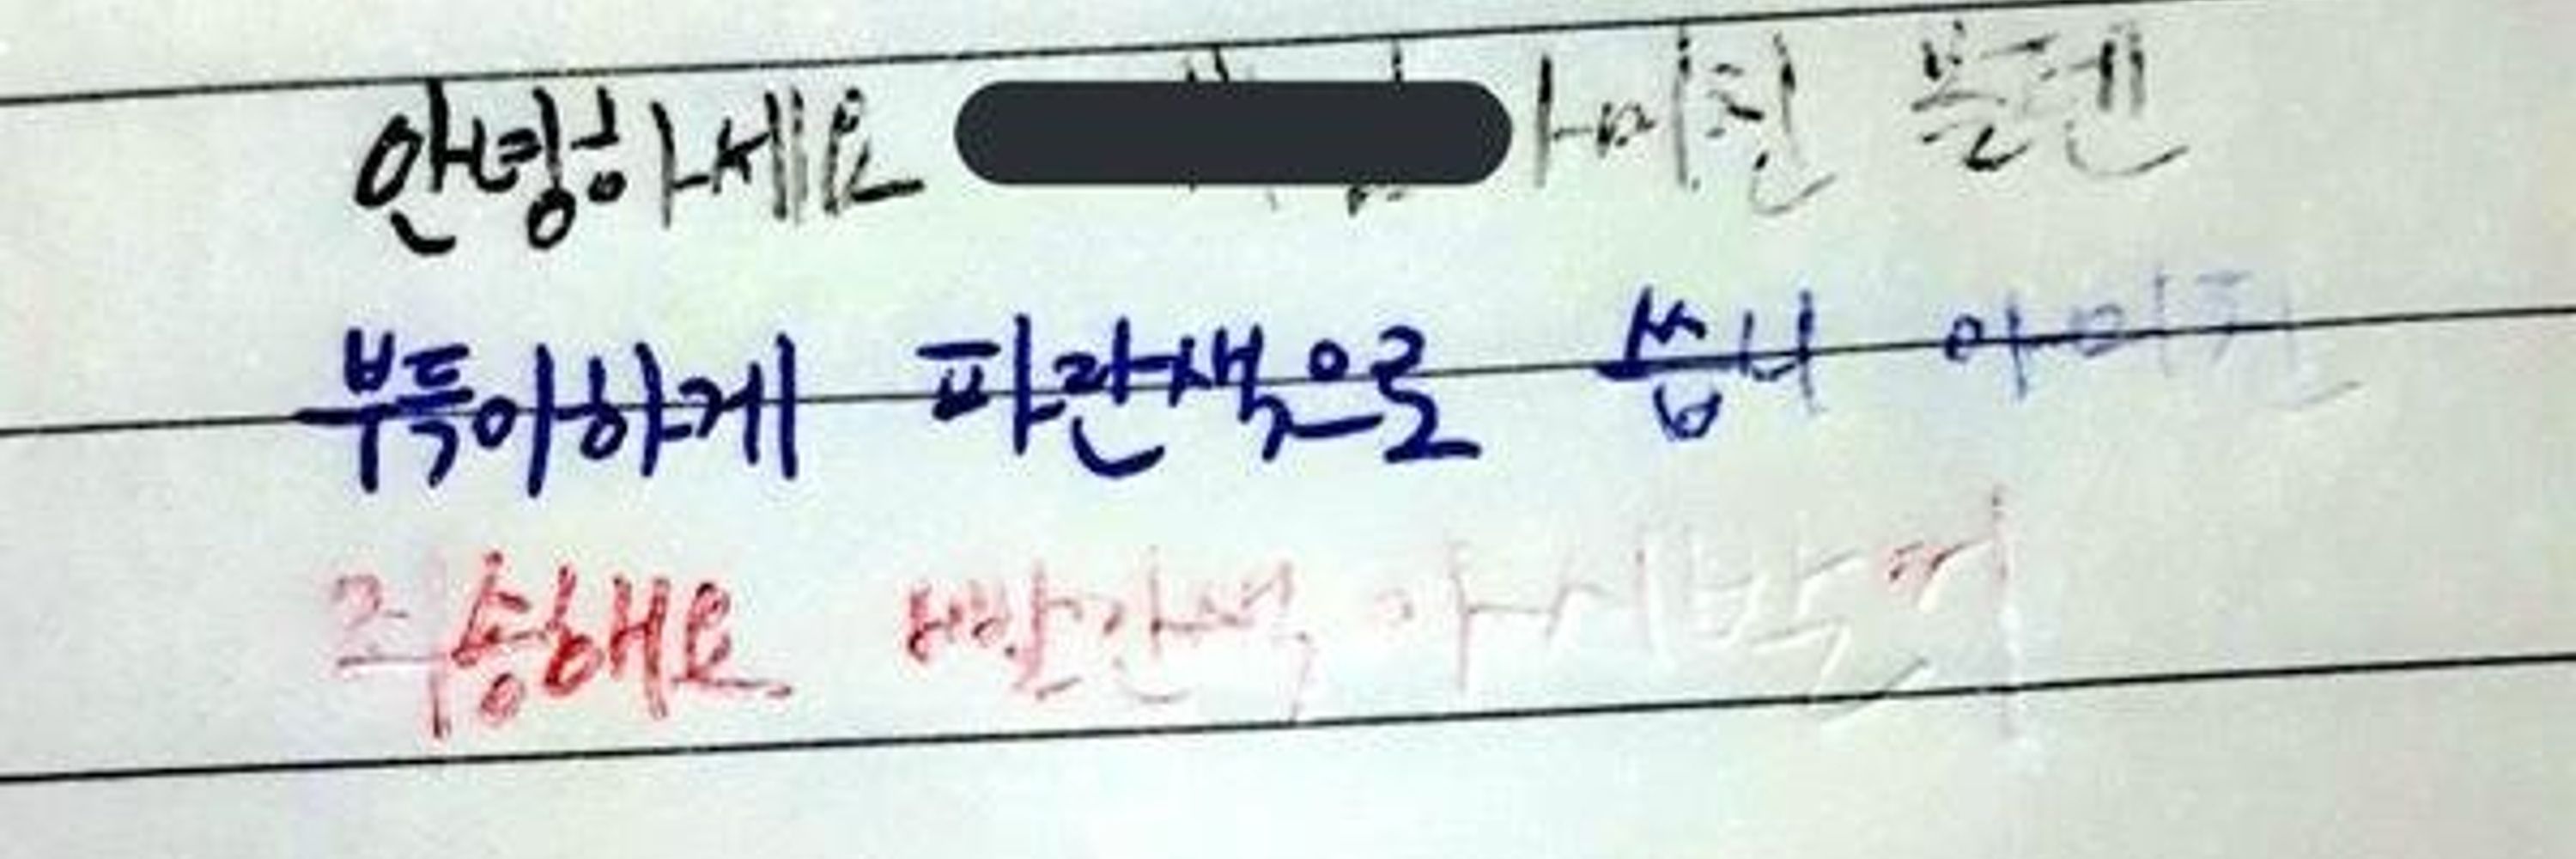 안녕하세요 아미친 볼펜
부득이하게 파란색으로 씁니 아미친
죄송해요 빨간색 아시발